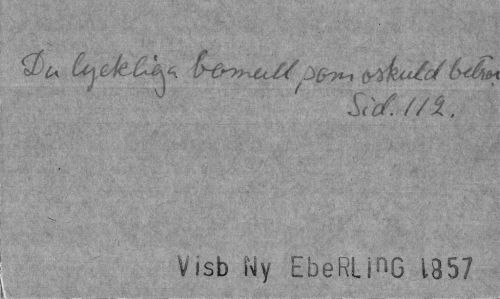 Du lyckliga bomull, som oskuld betror
Sid. 112.
Visb Ny EbeRLinG 1857